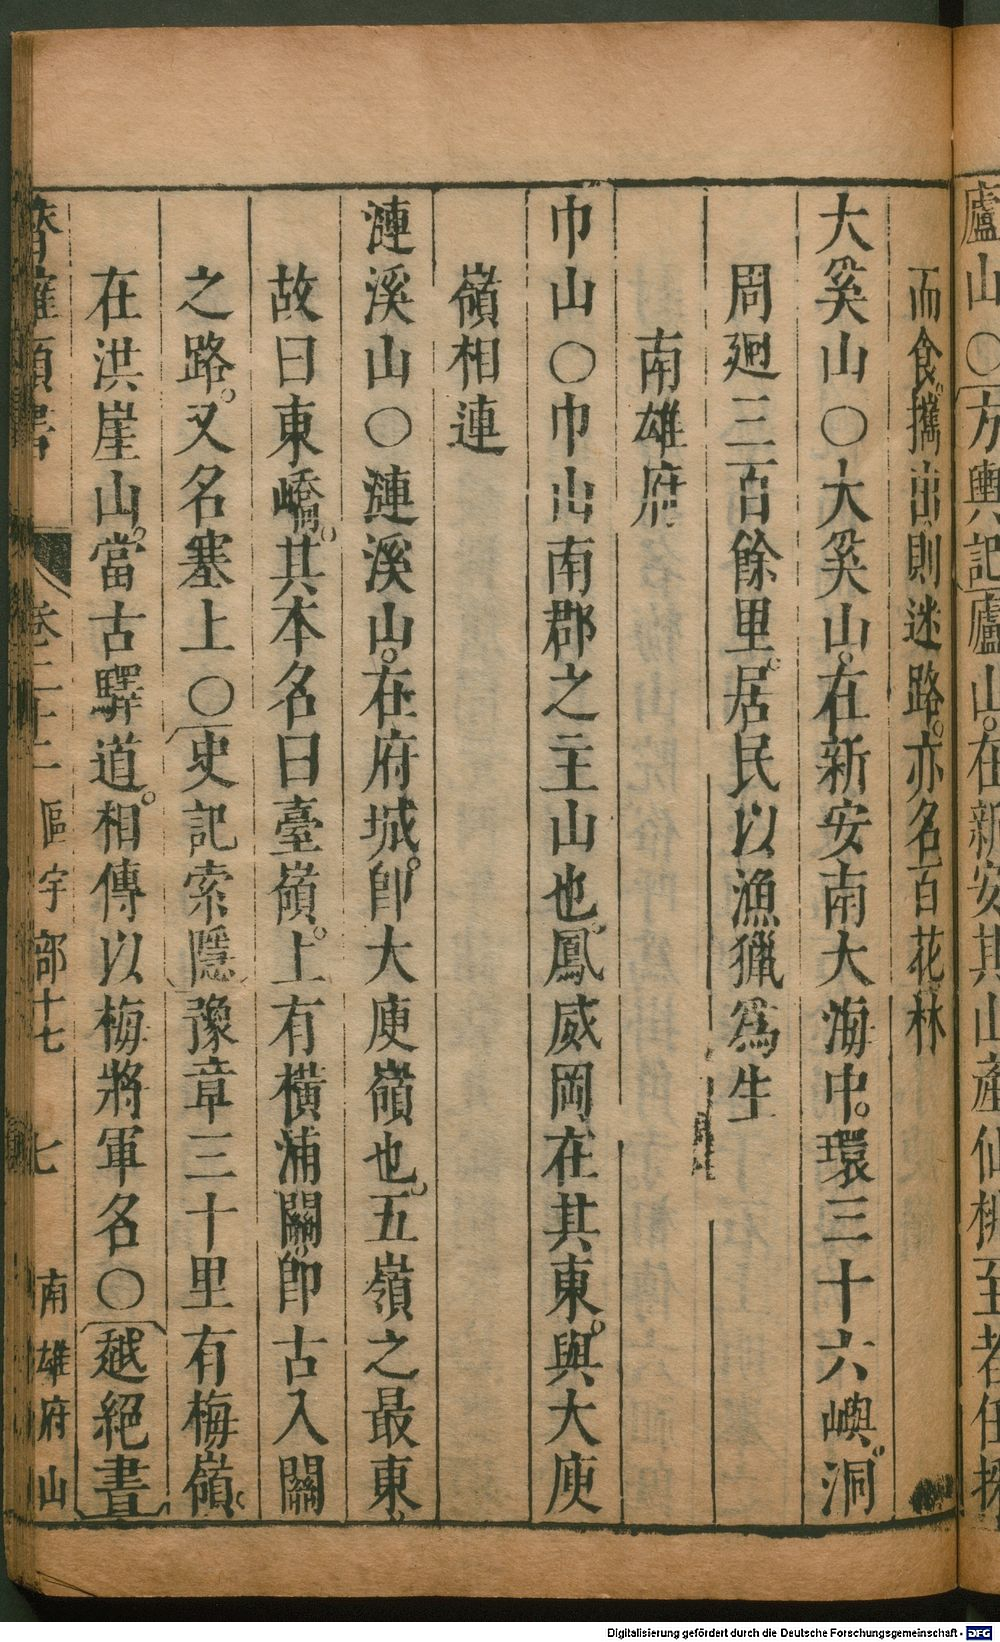 廬山○方輿記廬山在新安其山產仙桃至者任採
而食攜出則迷路亦名百花林
大奚山○大奚山在新安南大海中環三十六嶼洞
周廻三百餘里居民以漁獵爲生
南雄府
巾山○巾山南郡之主山也鳳威岡在其東與大庾
嶺相連
漣溪山○漣溪山在府城卽大庾嶺也五嶺之最東
故曰東嶠其本名曰臺嶺上有橫浦關卽古入關
之路又名塞上○史記索隱豫章三十里有梅嶺
在洪崖山當古驛道相傳以梅將軍名○越絕書
卷二十二 區宇部十七 七 南雄府山
Digitalisierung gefördert durch die Deutsche Forschungsgemeinschaft - DFG